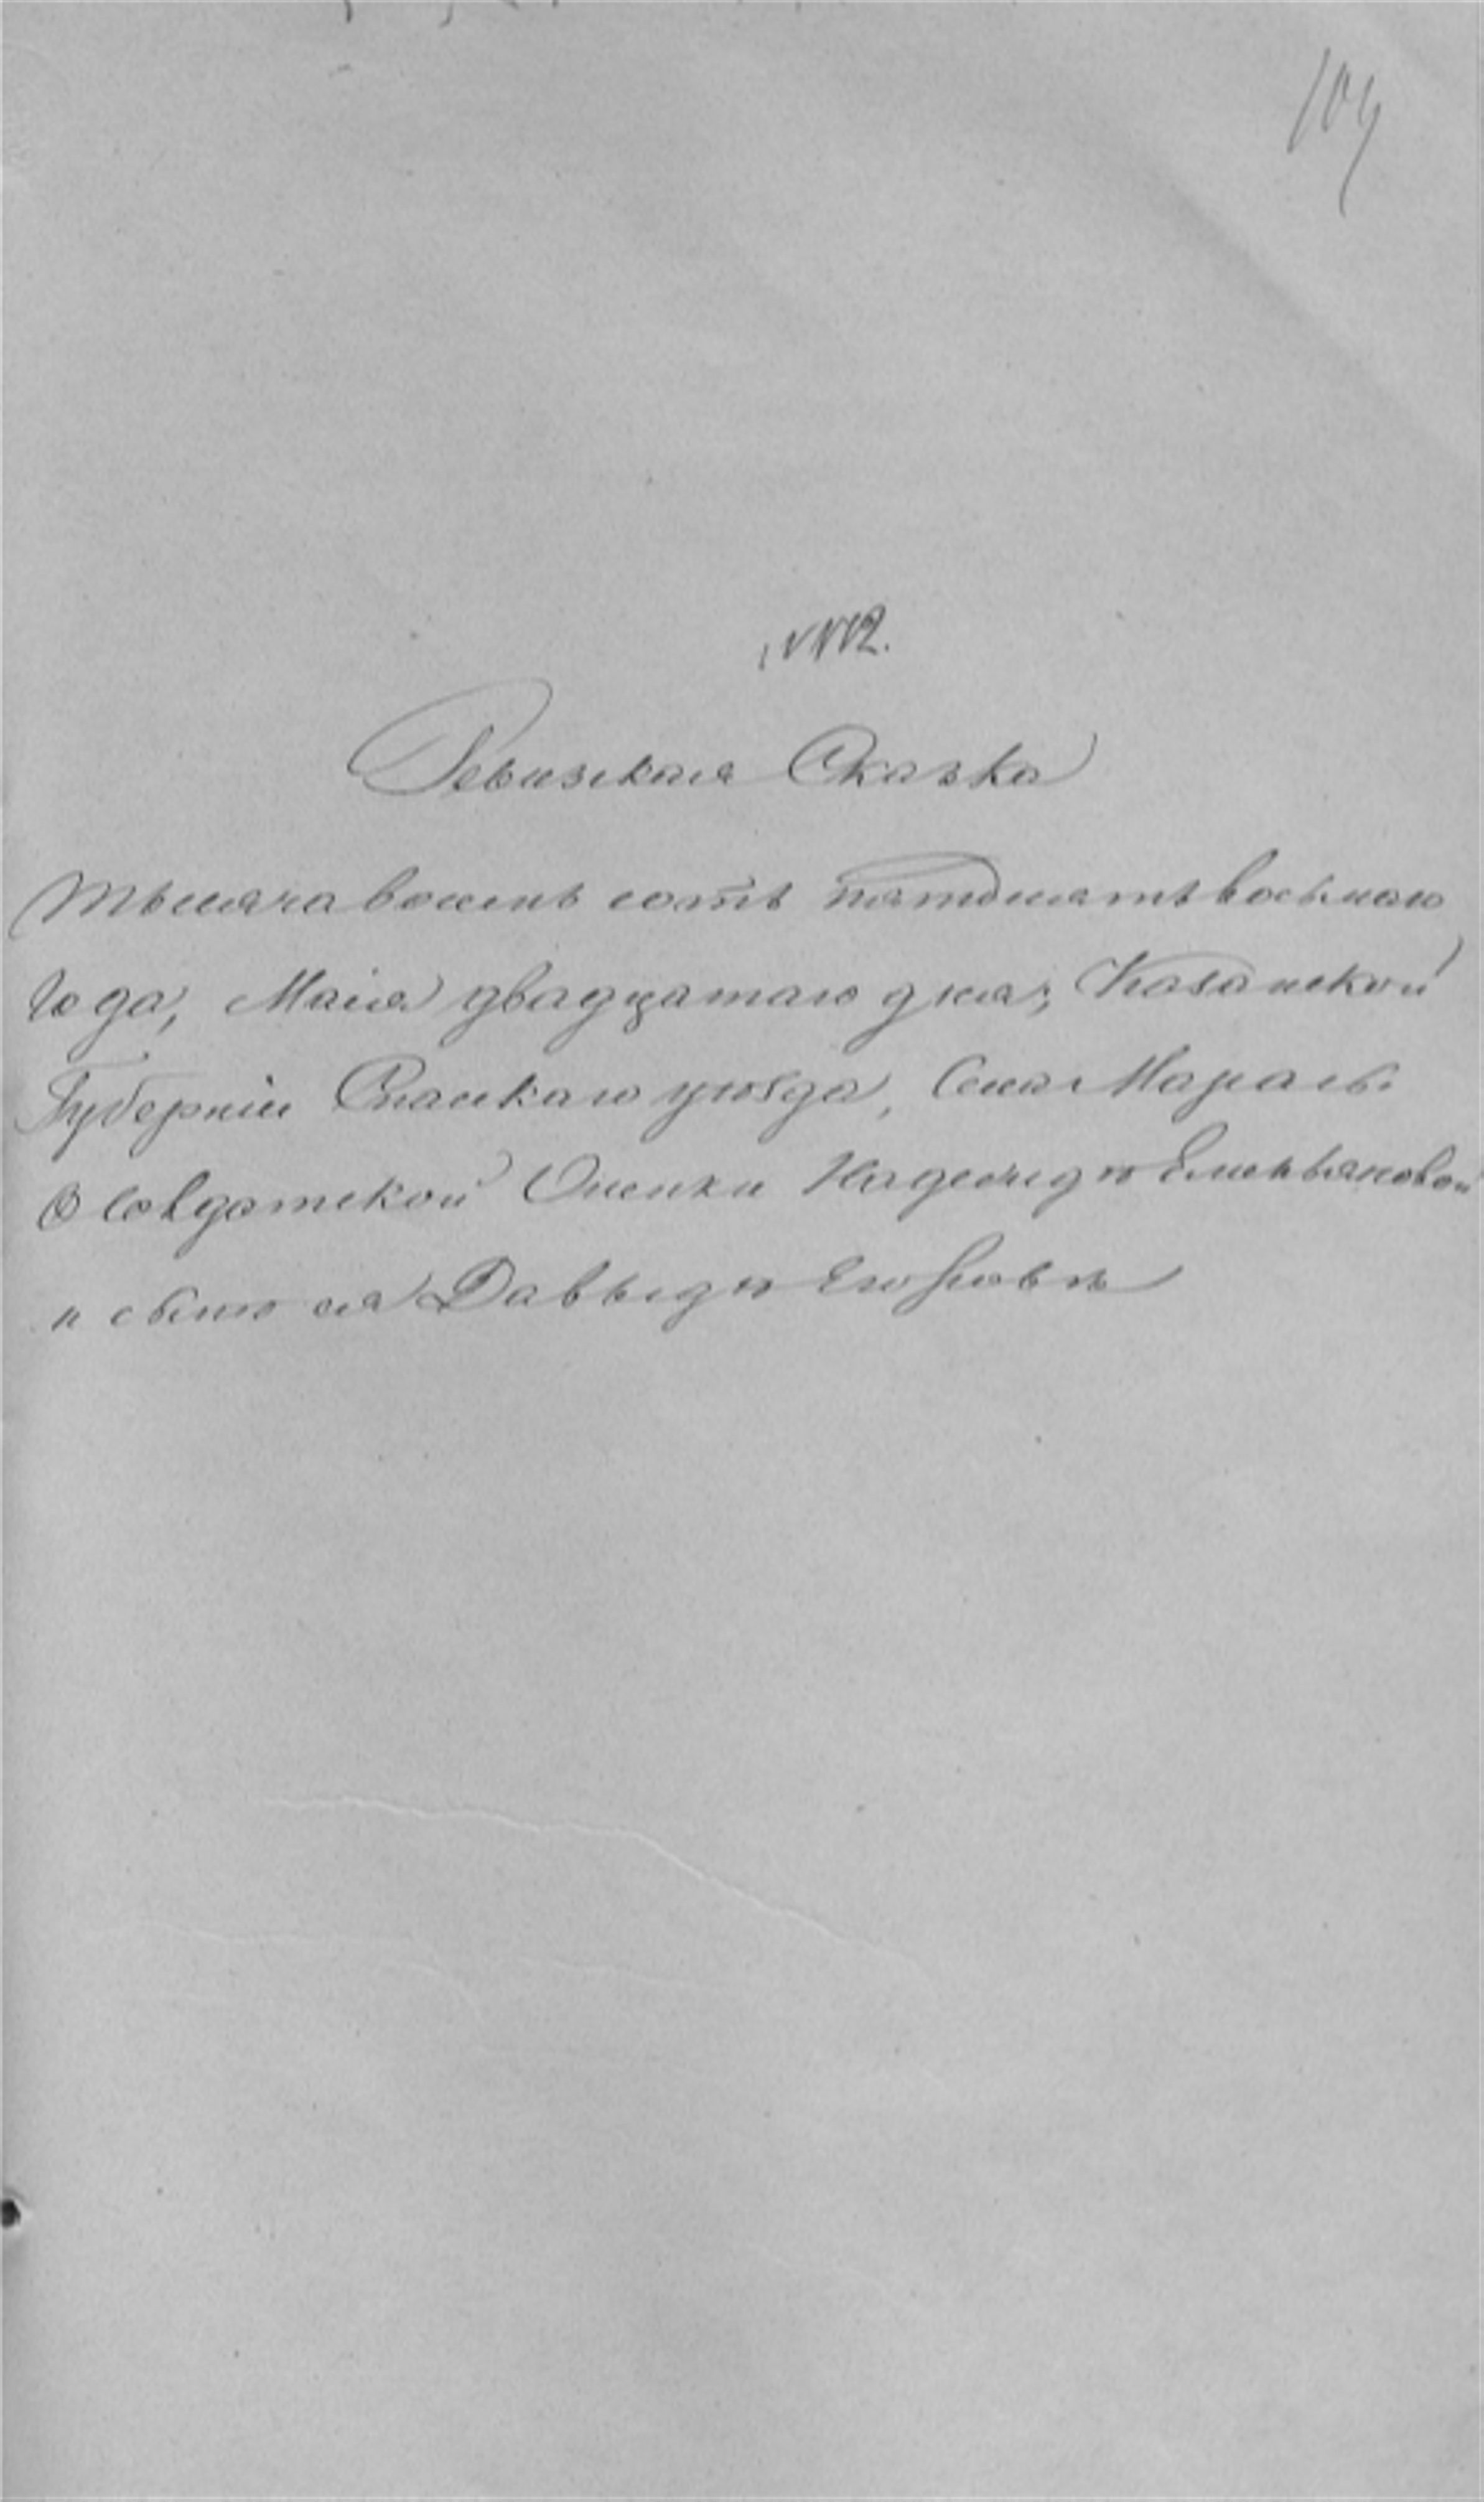 109
№ 12.
Ревизская Сказка
Тысяча восемь сотъ пятдесятъ восьмаго
Года, Маія двадцатаго дня, Казанской
Губерніи Спаскаго уѣзда, Села Марасы
О Солдатской Женки Надеждѣ Емельяновой
и сынѣ ея Давыдѣ Егоровѣ